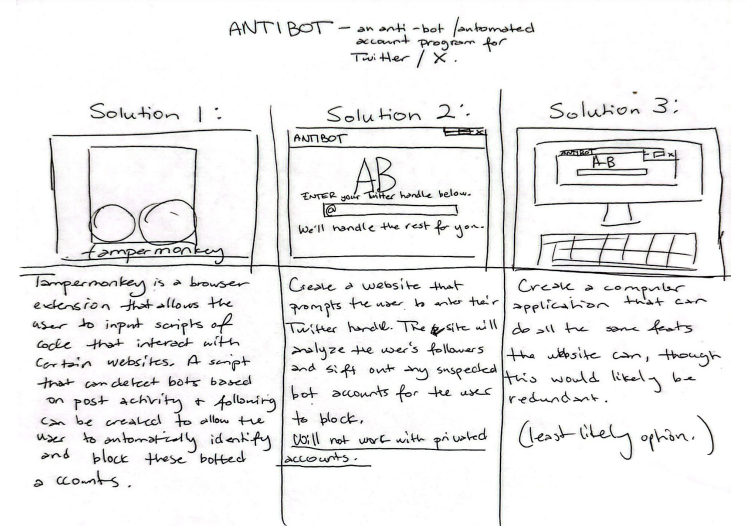 ANTIBOT – an anti-bot/automated
account program for
Twitter / X.
Solution 1:
tampermonkey
Tampermonkey is a browser
extension that allows the
user to input scripts of
code that interact with
certain websites. A script
that can detect bots based
on post activity & following
can be created to allow the
user to automatically identify
and block these botted
accounts.
Solution 2:
ANTIBOT
X
AB
ENTER your Twitter handle below.
@
We'll handle the rest for you.
Create a website that
prompts the user to enter their
Twitter handle. The site will
analyze the user's followers
and sift out any suspected
bot accounts for the user
to block.
Will not work with privated
accounts.
Solution 3:
ANTIBOT
X
AB
Create a computer
application that can
do all the same feats
the website can, though
this would likely be
redundant.
(least likely option.)